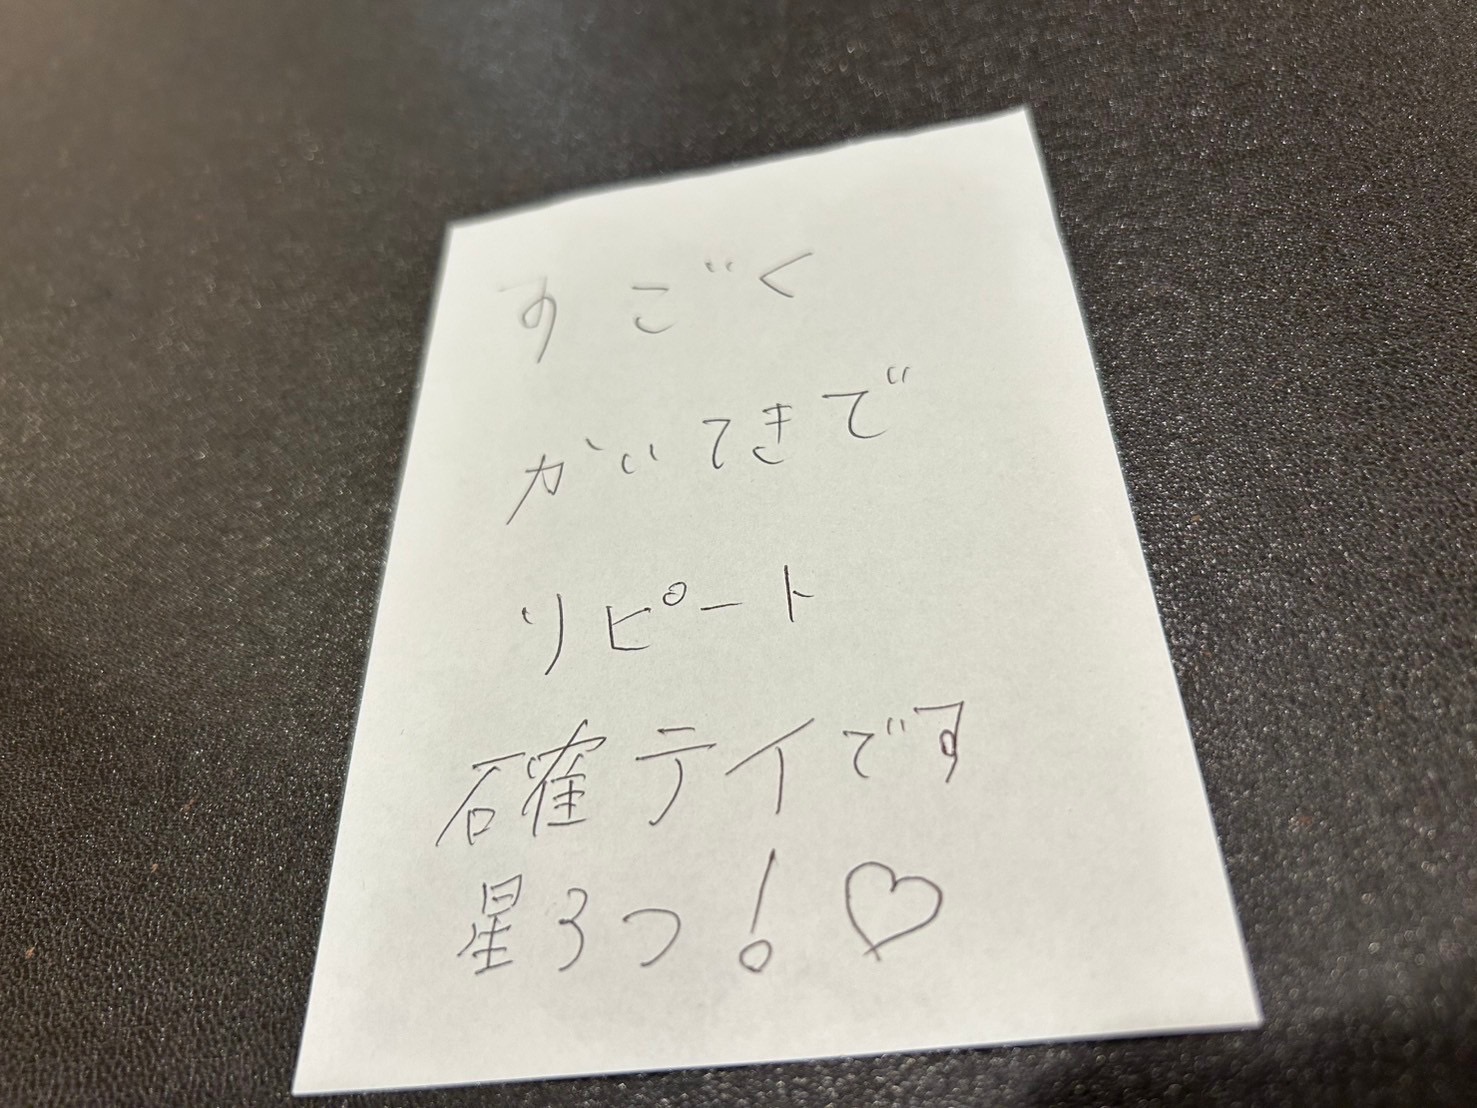 すごく
がいてきで
リピート
確テイです
星3つ!♡